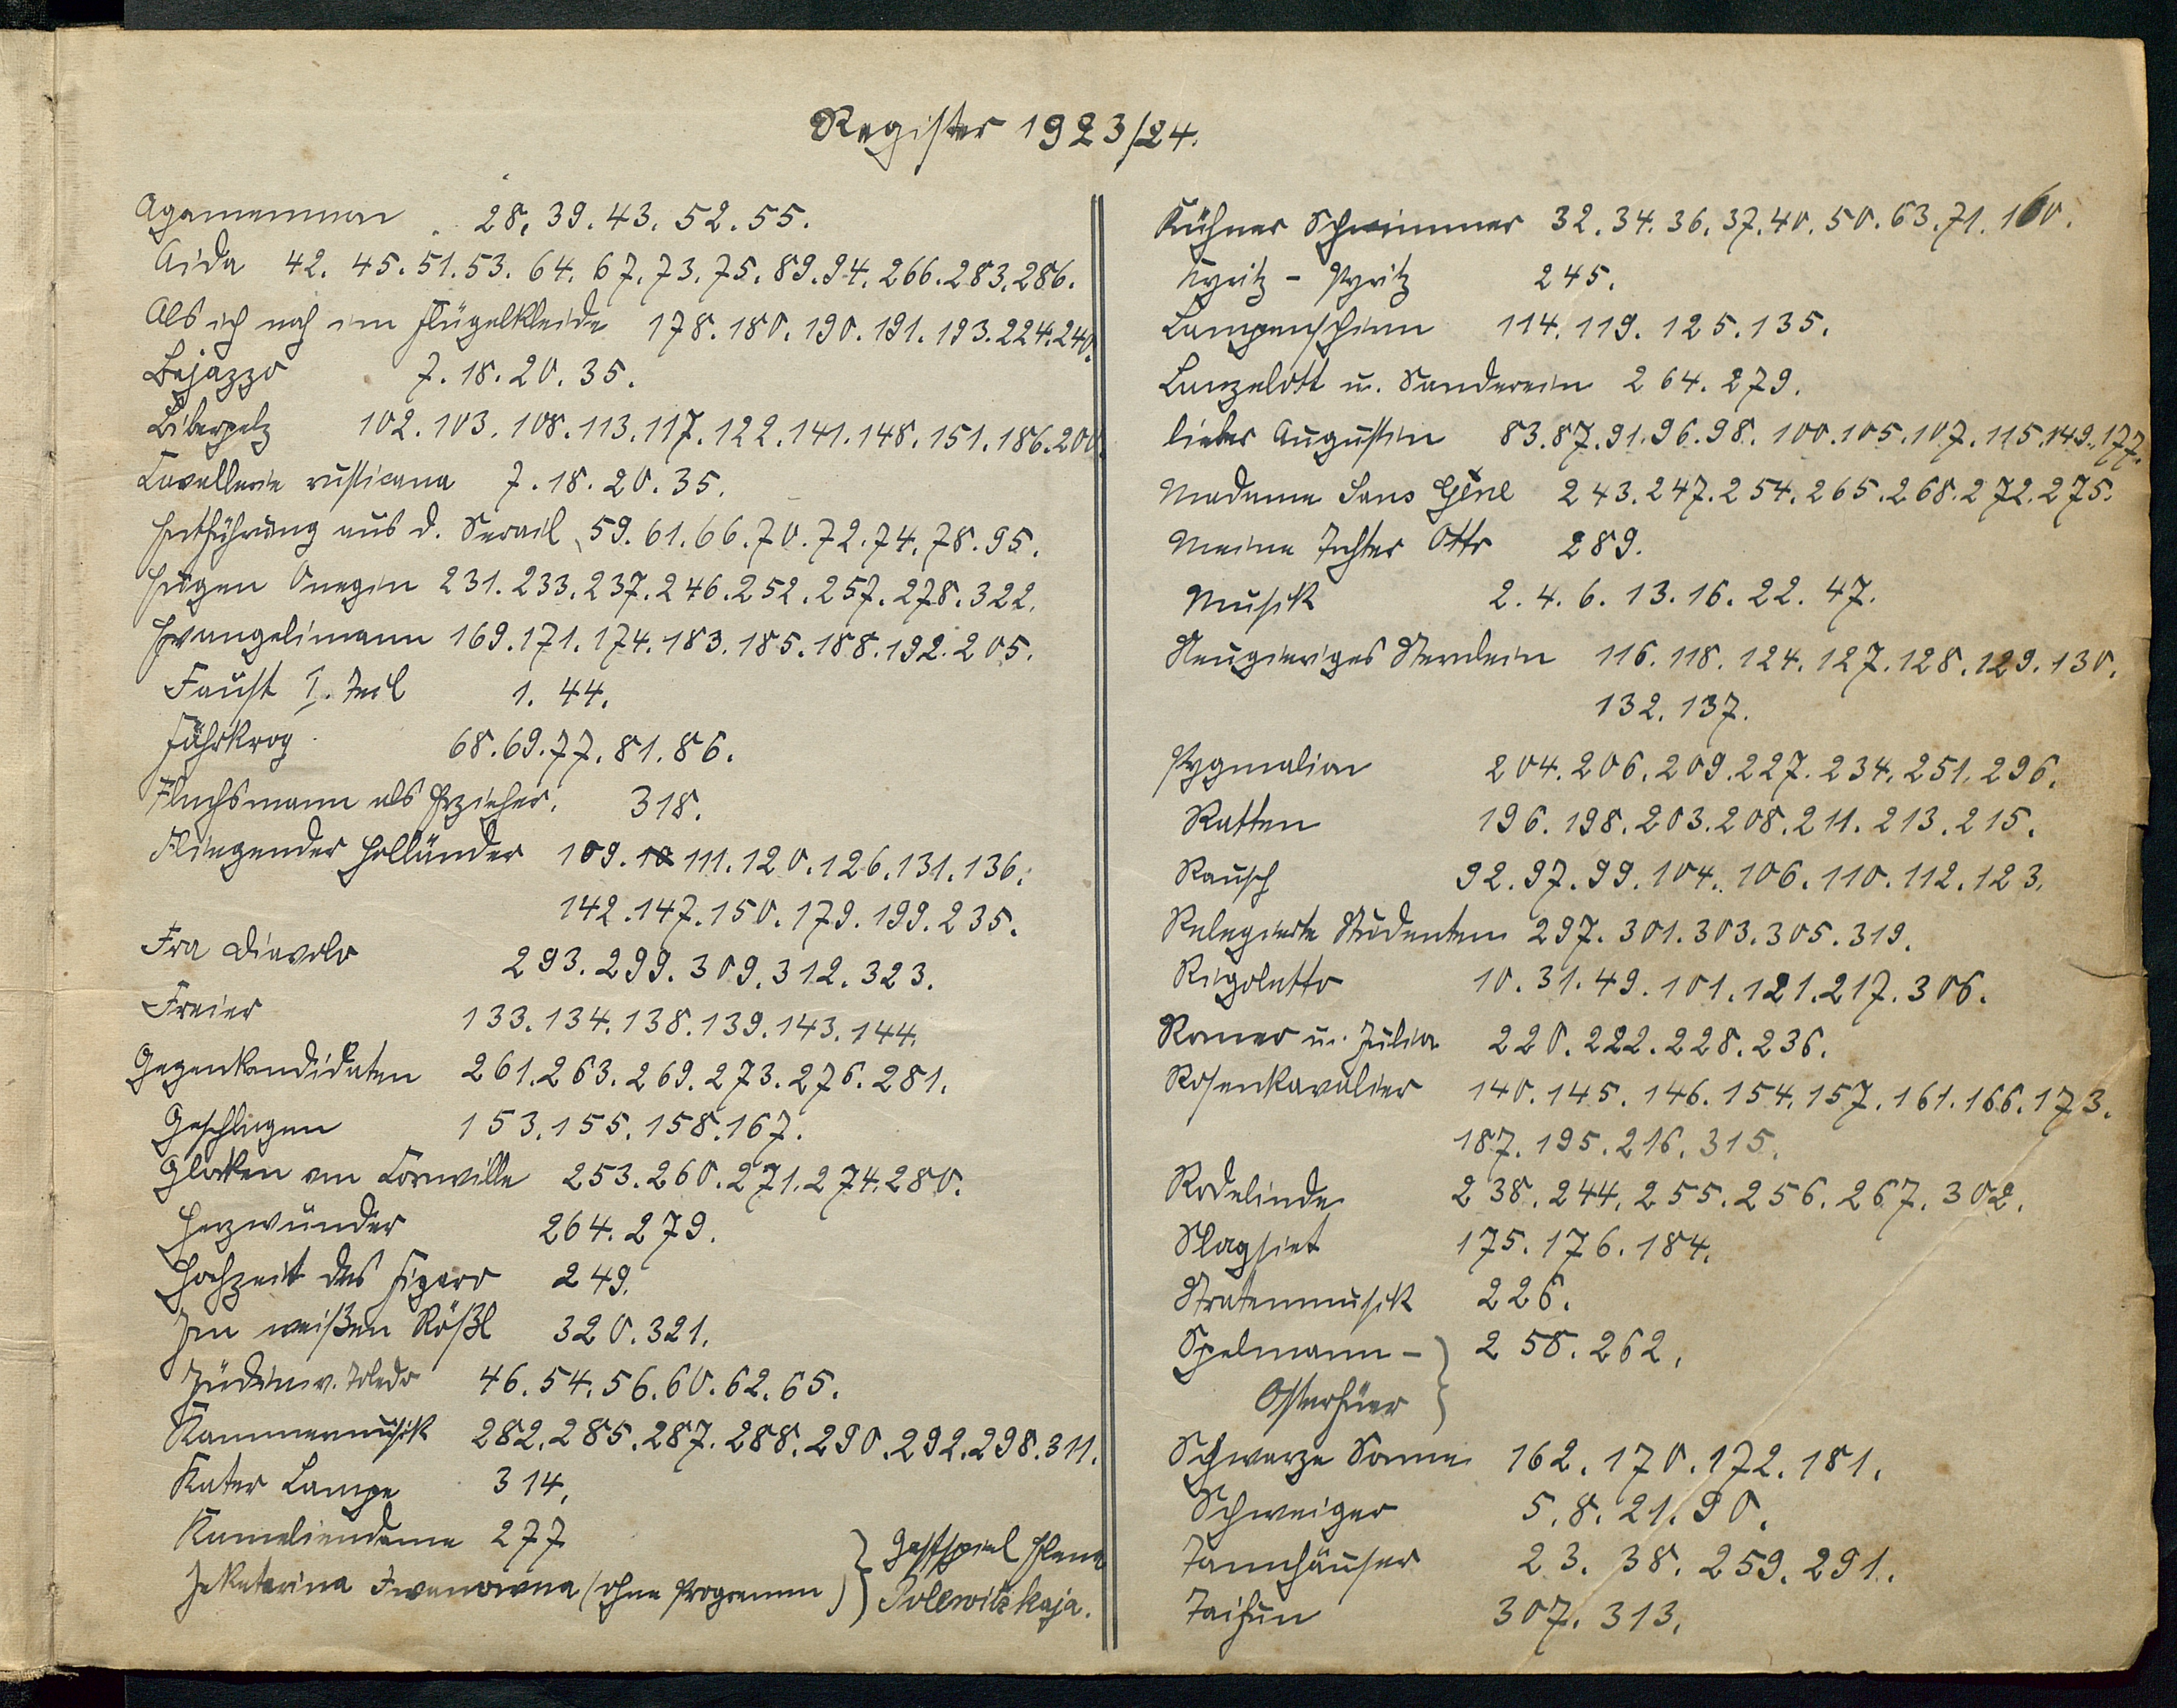 Register 1923/24.
Agamemnon 28. 39. 43. 52. 55.
Aida 42. 45. 51. 53. 64. 67. 73. 75. 89. 94. 266. 283. 286.
Als ich noch im Flügelkleide 178. 180. 190. 191. 193. 224. 240.
Bajazzo 7. 18. 20. 35.
Biberpelz 102. 103. 108. 113. 117. 122. 141. 148. 151. 186. 200.
Cavalleria rusticana 7. 18. 20. 35.
Entführung aus d. Serail 59. 61. 66. 70. 72. 74. 78. 95.
Eugen Onegin 231. 233. 237. 246. 252. 257. 278. 322.
Evangelimann 169. 171. 174. 183. 185. 188. 192. 205.
Faust I. Teil 1. 44.
Fährkrog 68. 69. 77. 81. 86.
Flachsmann als Erzieher. 318.
Fliegender Holländer 109. 111. 120. 126. 131. 136.
142. 147. 150. 179. 199. 235.
Fra Diavolo 293. 299. 309. 312. 323.
Freier 133. 134. 138. 139. 143. 144.
Gegenkandidaten 261. 263. 269. 273. 276. 281.
Geschlagen 153. 155. 158. 167.
Glocken von Cornville 253. 260. 271. 274. 280.
Herzwunder 264. 279.
Hochzeit des Figaro 249.
Im weißen Rößl 320. 321.
Jüdin v. Toledo 46. 54. 56. 60. 62. 65.
Kammermusik 282. 285. 287. 288. 290. 292. 298. 311.
Kater Lampe 314.
Kameliendame 277 } Gastspiel Elena
Jekaterina Iwanowna (ohne Programm) } Polewitzkaja.
Kühner Schwimmer 32. 34. 36. 37. 40. 50. 63. 71. 160.
Kyritz - Pyritz 245.
Lampenschirm 114. 119. 125. 135.
Lanzelott u. Sanderein 264. 279.
lieber Augustin 83. 87. 91. 96. 98. 100. 105. 107. 115. 149. 177.
Madame Sans Gêne 243. 247. 254. 265. 268. 272. 275.
Meine Tochter Otto 289.
Musik 2. 4. 6. 13. 16. 22. 47.
Neugieriges Sternlein 116. 118. 124. 127. 128. 129. 130.
132. 137.
Pygmalion 204. 206. 209. 227. 234. 251. 296.
Ratten 196. 198. 203. 208. 211. 213. 215.
Rausch 92. 97. 99. 104. 106. 110. 112. 123.
Relegierte Studenten 297. 301. 303. 305. 319.
Rigoletto 10. 31. 49. 101. 121. 217. 306.
Romeo u. Julia 220. 222. 228. 236.
Rosenkavalier 140. 145. 146. 154. 157. 161. 166. 173.
187. 195. 216. 315.
Rodelinde 238. 244. 255. 256. 267. 302.
Slagsiet 175. 176. 184.
Stratenmusik 226.
Spelmann - } 258. 262.
Osterfüer }
Schwarze Sonne 162. 170. 172. 181.
Schweiger 5. 8. 21. 90.
Tannhäuser 23. 38. 259. 291.
Taifun 307. 313.